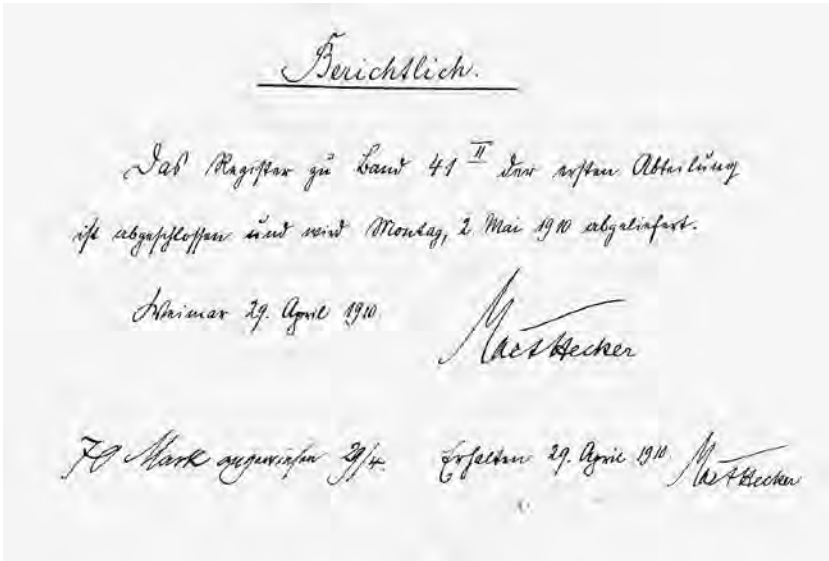 Berichtlich.
Das Register zu Band 41 II der ersten Abteilung
ist abgeschlossen und wird Montag, 2. Mai 1910 abgeliefert.
Weimar 29. April 1910.
Max Hecker
70 Mark angewiesen 29/4. Erhalten 29. April 1910. Max Hecker